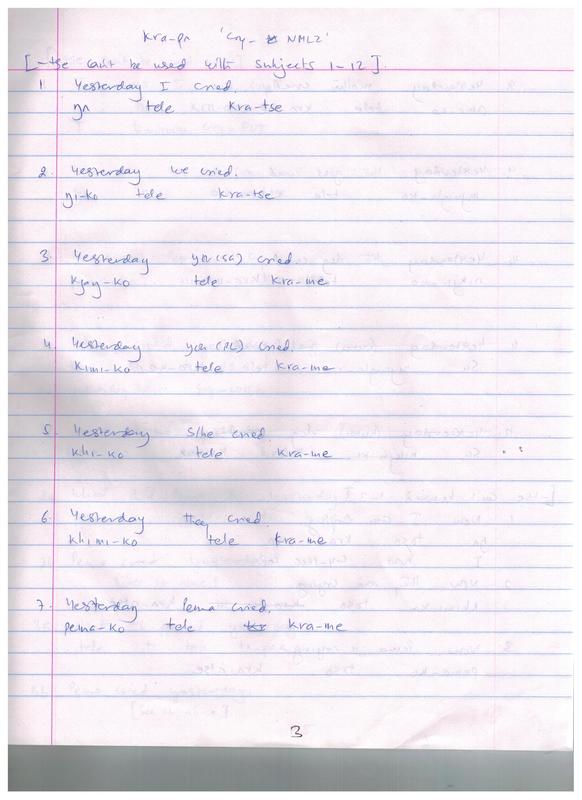 Kra-pa 'Cry- NMLZ'
[-tse can't be used with subjects 1-12].
1. Yesterday I cried.
ŋa tele kra-tse
2. Yesterday we cried.
ŋi-ko tele kra-tse
3. Yesterday you (SG) cried.
kjəŋ-ko tele kra-me
4. Yesterday you (PL) cried.
kimi-ko tele kra-me
5. Yesterday s/he cried.
khi-ko tele kra-me
6. Yesterday they cried.
khimi-ko tele kra-me
7. Yesterday Pema cried.
pema-ko tele kra-me
3